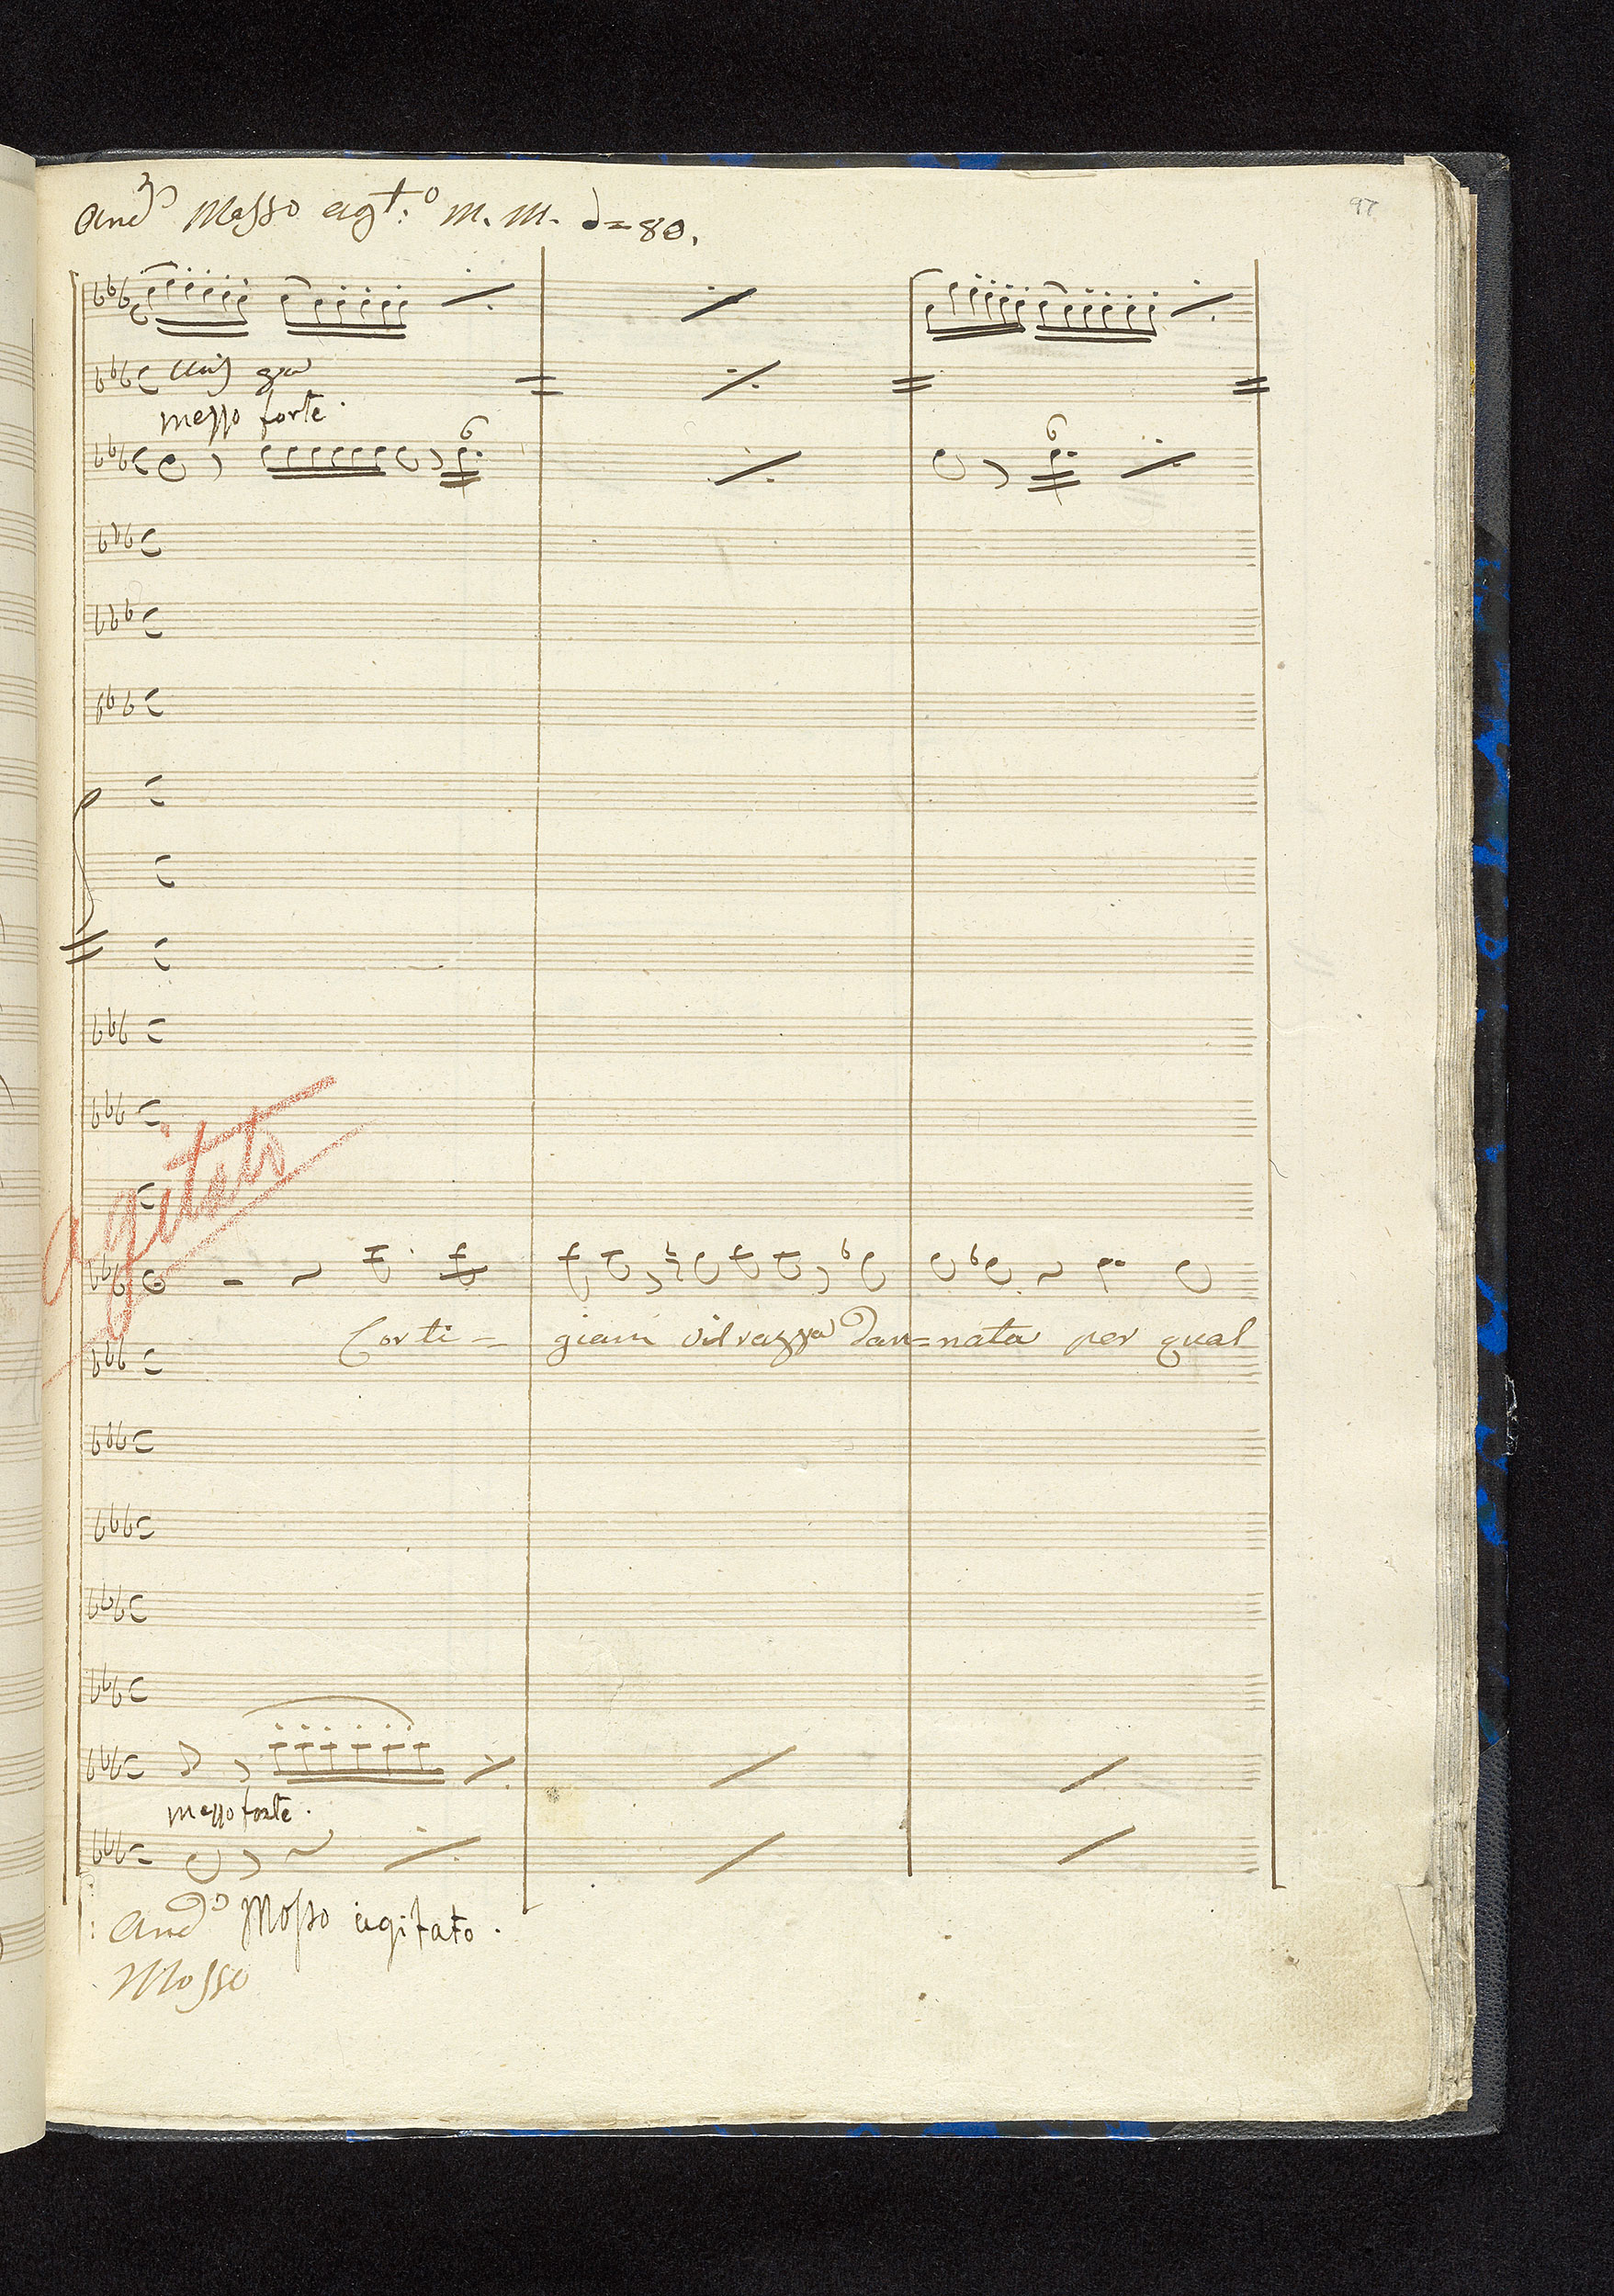 And.º Mosso agt:º M. M. d=80.
97
mezzo forte.
agitato
Corti= giani vil razza Dan=nata per qual
mezzo forte.
And.º Mosso agitato.
Mosso